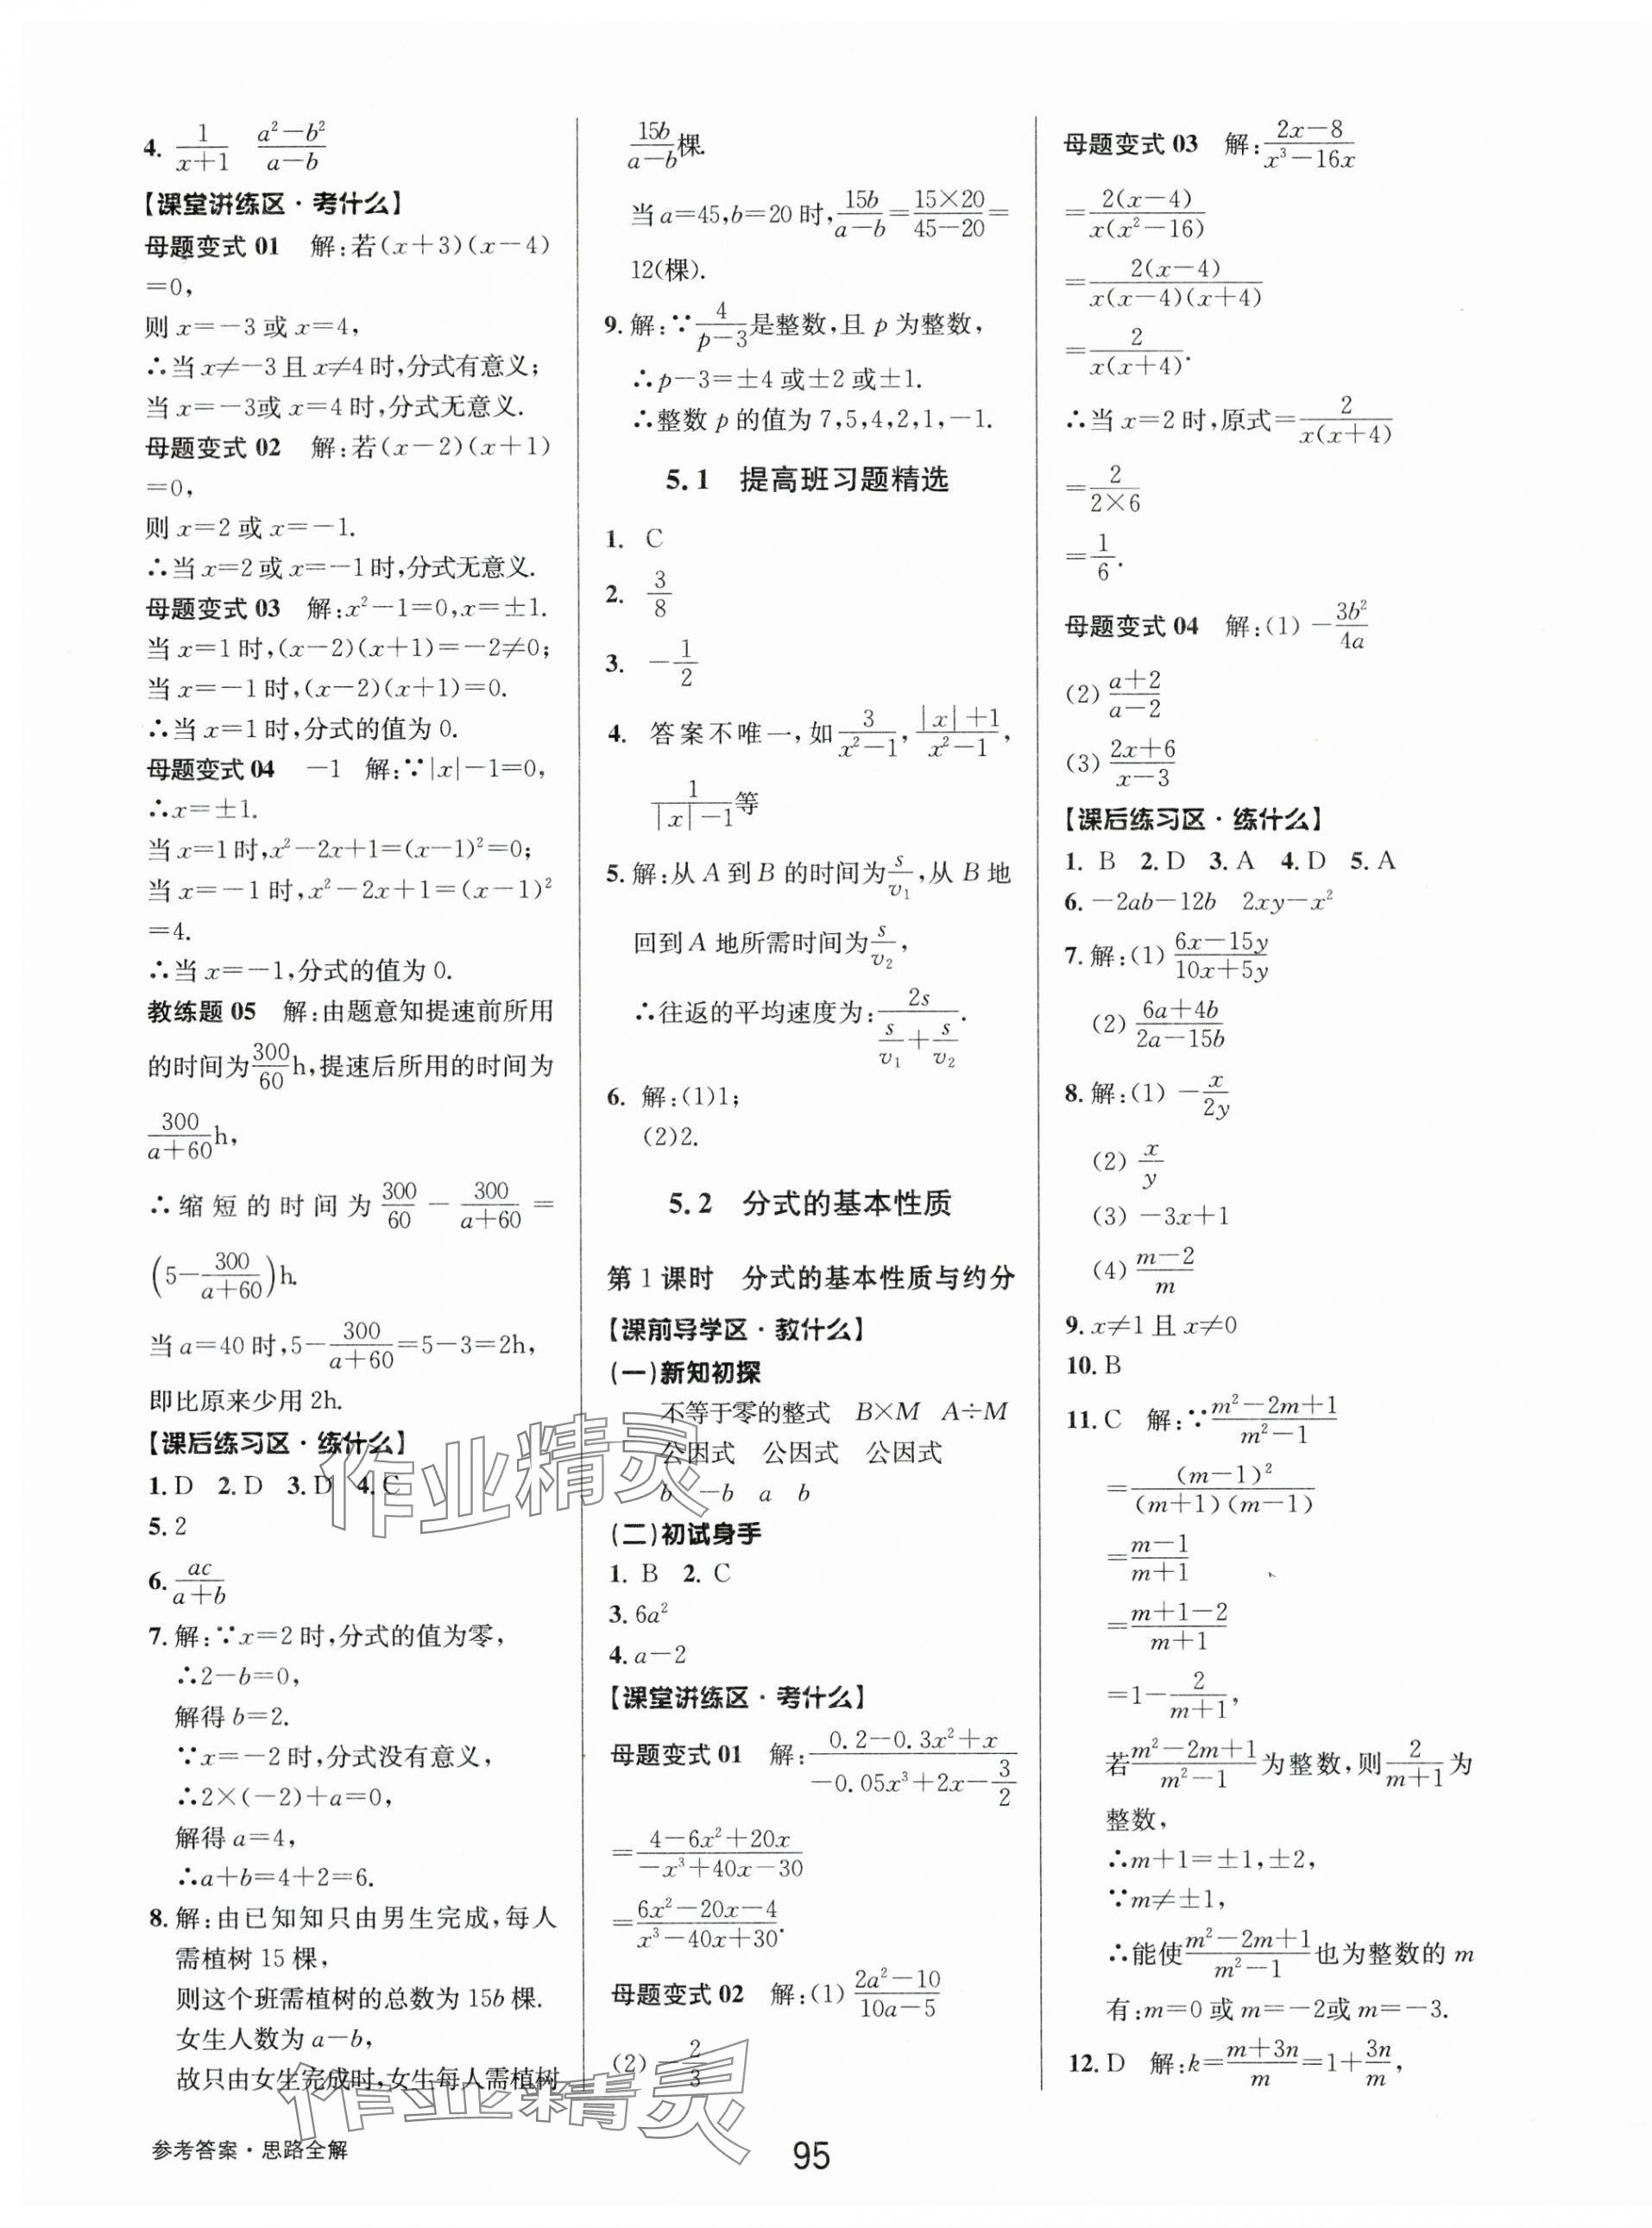 4. 1/(x+1)  (a²-b²)/(a-b)
【课堂讲练区·考什么】
母题变式 01 解:若(x+3)(x-4)
=0,
则 x=-3 或 x=4,
∴当 x≠-3 且 x≠4 时,分式有意义;
当 x=-3或 x=4 时,分式无意义.
母题变式 02 解:若(x-2)(x+1)
=0,
则 x=2 或 x=-1.
∴当 x=2 或 x=-1 时,分式无意义.
母题变式 03 解:x²-1=0,x=±1.
当 x=1 时,(x-2)(x+1)=-2≠0;
当 x=-1 时,(x-2)(x+1)=0.
∴当 x=1 时,分式的值为 0.
母题变式 04 -1 解:∵|x|-1=0,
∴x=±1.
当 x=1 时,x²-2x+1=(x-1)²=0;
当 x=-1 时,x²-2x+1=(x-1)²
=4.
∴当 x=-1,分式的值为 0.
教练题 05 解:由题意知提速前所用
的时间为300/60 h,提速后所用的时间为
300/(a+60) h,
∴缩短的时间为 300/60 - 300/(a+60) =
(5-300/(a+60))h.
当 a=40 时,5-300/(a+60)=5-3=2h,
即比原来少用 2h.
【课后练习区·练什么】
1. D 2. D 3. D 4. C
5. 2
6. ac/(a+b)
7. 解:∵x=2 时,分式的值为零,
∴2-b=0,
解得 b=2.
∵x=-2 时,分式没有意义,
∴2×(-2)+a=0,
解得 a=4,
∴a+b=4+2=6.
8. 解:由已知知只由男生完成,每人
需植树 15 棵,
则这个班需植树的总数为 15b 棵.
女生人数为 a-b,
故只由女生完成时,女生每人需植树
15b/(a-b)棵.
当 a=45,b=20 时,15b/(a-b)=(15×20)/(45-20)=
12(棵).
9. 解:∵4/(p-3)是整数,且 p 为整数,
∴p-3=±4 或±2 或±1.
∴整数 p 的值为 7,5,4,2,1,-1.
5.1 提高班习题精选
1. C
2. 3/8
3. -1/2
4. 答案不唯一,如3/(x²-1),(|x|+1)/(x²-1),
1/(|x|-1)等
5. 解:从 A 到 B 的时间为s/v₁,从 B 地
回到 A 地所需时间为s/v₂,
∴往返的平均速度为:2s/(s/v₁+s/v₂).
6. 解:(1)1;
(2)2.
5.2 分式的基本性质
第 1 课时 分式的基本性质与约分
【课前导学区·教什么】
(一)新知初探
不等于零的整式 B×M A÷M
公因式 公因式 公因式
b -b a b
(二)初试身手
1. B 2. C
3. 6a²
4. a-2
【课堂讲练区·考什么】
母题变式 01 解:(0.2-0.3x²+x)/(-0.05x³+2x-3/2)
=(4-6x²+20x)/(-x³+40x-30)
=(6x²-20x-4)/(x³-40x+30).
母题变式 02 解:(1)(2a²-10)/(10a-5)
(2)-2/3
母题变式 03 解:(2x-8)/(x³-16x)
=2(x-4)/(x(x²-16))
=2(x-4)/(x(x-4)(x+4))
=2/(x(x+4)).
∴当 x=2 时,原式=2/(x(x+4))
=2/(2×6)
=1/6.
母题变式 04 解:(1)-3b²/4a
(2)(a+2)/(a-2)
(3)(2x+6)/(x-3)
【课后练习区·练什么】
1. B 2. D 3. A 4. D 5. A
6. -2ab-12b 2xy-x²
7. 解:(1)(6x-15y)/(10x+5y)
(2)(6a+4b)/(2a-15b)
8. 解:(1)-x/2y
(2)x/y
(3)-3x+1
(4)(m-2)/m
9. x≠1 且 x≠0
10. B
11. C 解:∵(m²-2m+1)/(m²-1)
=(m-1)²/((m+1)(m-1))
=(m-1)/(m+1)
=(m+1-2)/(m+1)
=1-2/(m+1),
若(m²-2m+1)/(m²-1)为整数,则2/(m+1)为
整数,
∴m+1=±1,±2,
∵m≠±1,
∴能使(m²-2m+1)/(m²-1)也为整数的 m
有:m=0 或 m=-2或 m=-3.
12. D 解:k=(m+3n)/m=1+3n/m,
作业精灵
作业精灵
参考答案·思路全解
95